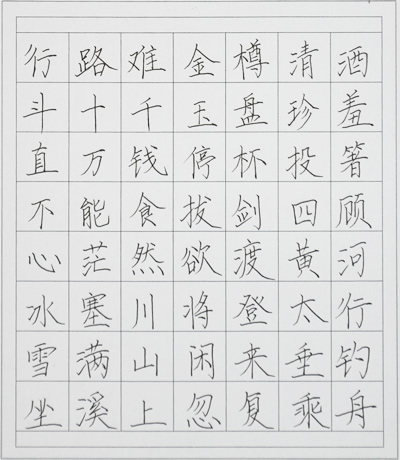 行路难金樽清酒
斗十千玉盘珍羞
直万钱停杯投箸
不能食拔剑四顾
心茫然欲渡黄河
冰塞川将登太行
雪满山闲来垂钓
坐溪上忽复乘舟